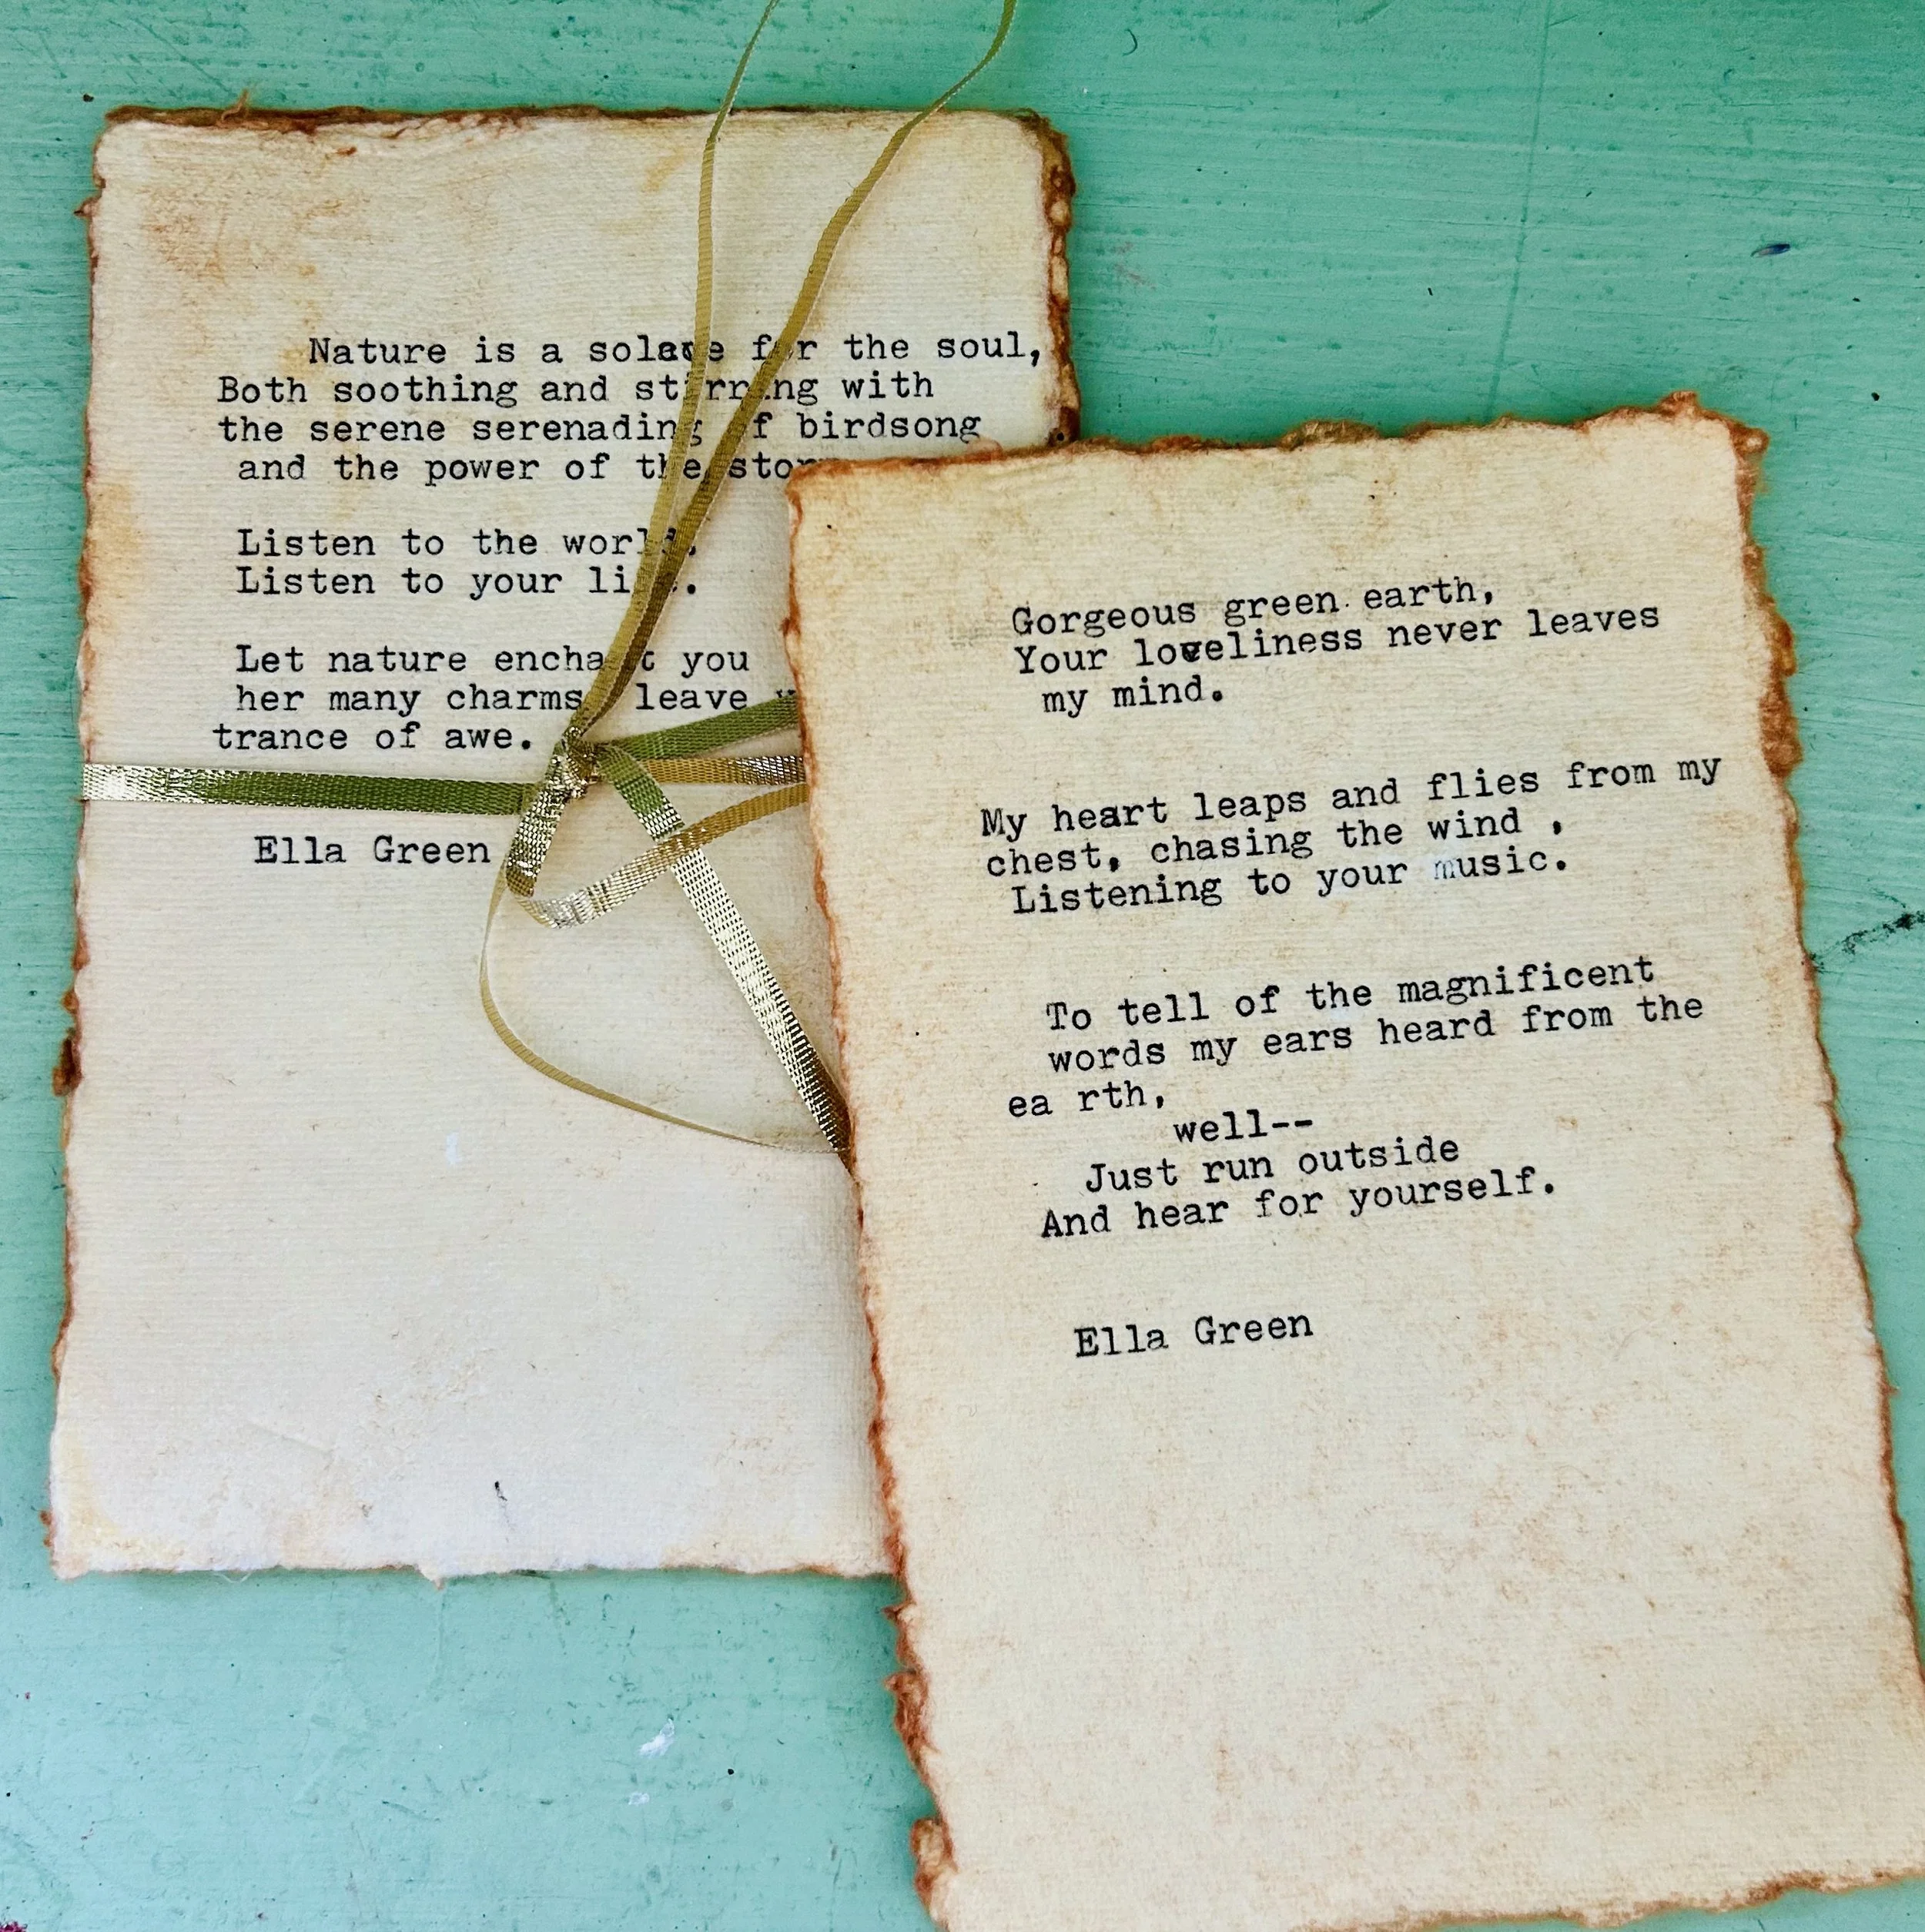 Nature is a solace for the soul,
Both soothing and stirring with
the serene serenading of birdsong
and the power of the
Listen to the world.
Listen to your life.
Let nature enchant you
her many charms leave
trance of awe.
Ella Green
Gorgeous green earth,
Your loveliness never leaves
my mind.
My heart leaps and flies from my
chest, chasing the wind ,
Listening to your music.
To tell of the magnificent
words my ears heard from the
ea rth,
well--
Just run outside
And hear for yourself.
Ella Green